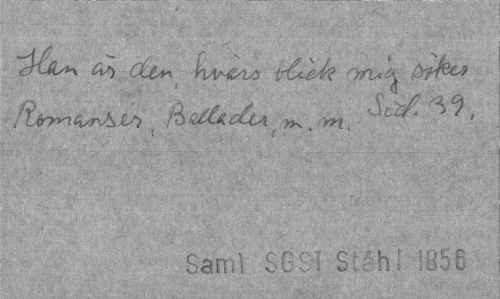 Han är den, hvars blick mig söker
Romanser, Ballader, m. m. Sid. 39.
Saml SGSI Ståhl 1856